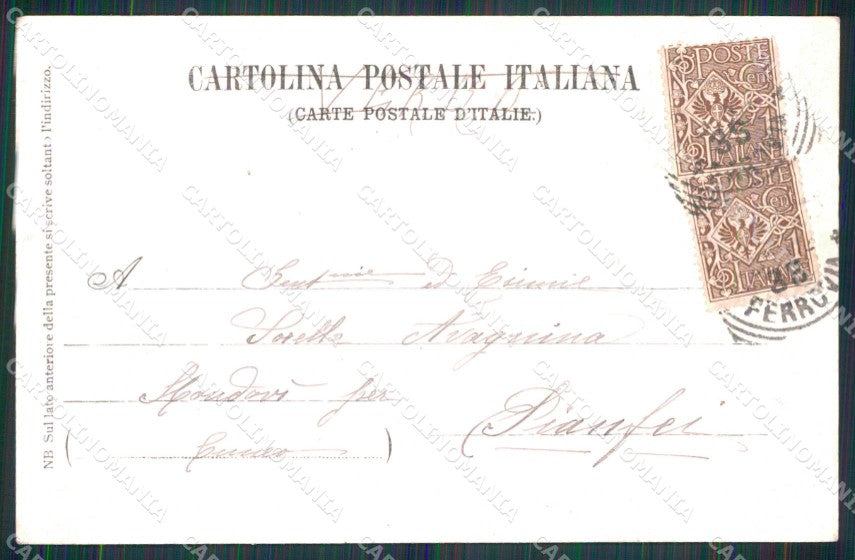 CARTOLINA POSTALE ITALIANA
(CARTE POSTALE D'ITALIE.)
NB Sul lato anteriore della presente si scrive soltanto l'indirizzo.
POSTE
CENT
ITALIANE
35
POSTE
CENT 1
ITALIANE
35
FERROVIA
A Gent.me ed Esimie
Sorelle Avagnina
Mondovì per Pianfei
(Cuneo)
CARTOLINOMANIA